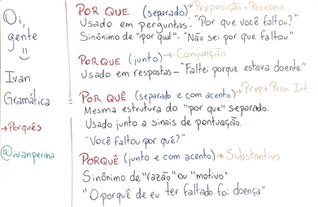 Oi,
gente
Ivan
Gramática
→Porquês
@ivanperina
POR QUE (separado) → Preposição + Pronome
Usado em perguntas - "Por que você faltou?"
Sinônimo de "por quê" - "Não sei por que faltou"
PORQUE (junto) → Conjunção
Usado em respostas - "Faltei porque estava doente"
POR QUÊ (separado e com acento) → Prep + Pron. Int
Mesma estrutura do "por que" separado.
Usado junto a sinais de pontuação.
"Você faltou por quê?"
PORQUÊ (junto e com acento) → Substantivo
Sinônimo de "razão" ou "motivo"
"O porquê de eu ter faltado foi doença"